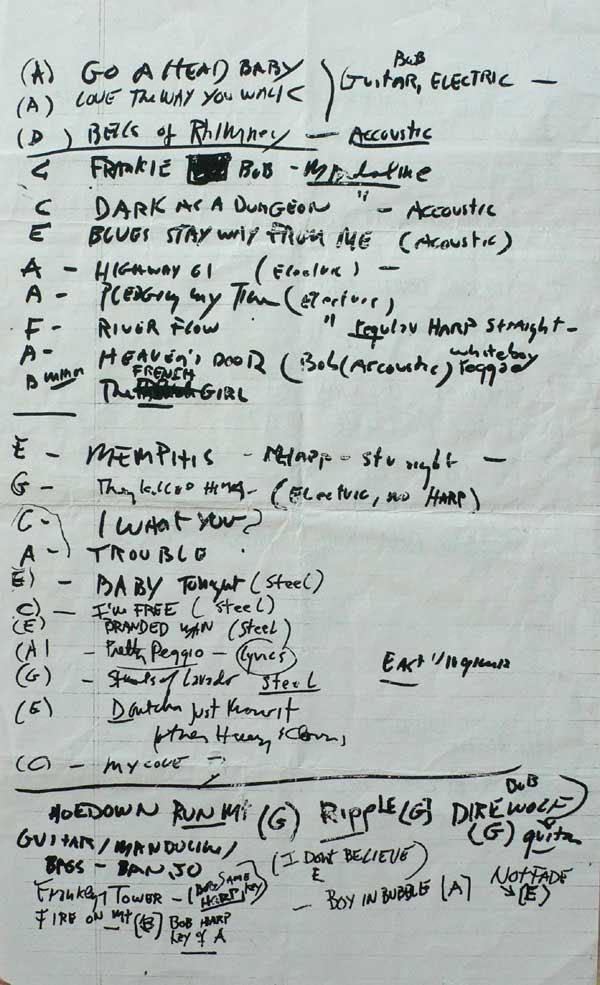 (A) GO A HEAD BABY
(A) LOVE THE WAY YOU WALK
BOB
GUITAR, ELECTRIC —
(D) BELLS of Rhymney — ACCOUSTIC
G FRANKIE BOB - Mandoline
C DARK AS A DUNGEON " - ACCOUSTIC
E BLUES STAY WAY FROM ME (ACOUSTIC)
A - HIGHWAY 61 (Electric) —
A - PLEDGing my Time (Electric)
F - RIVER FLOW " regular HARP STRAIGHT -
A - HEAVEN'S DOOR (Bob (Accoustic) whiteboy reggae
B minor The FRENCH GIRL
E - MEMPHIS - - straight -
G - They killed Him - (Electric, no HARP)
C - I WANT YOU?
A - TROUBLE
E) - BABY Tonight (Steel)
C) - I'M FREE (Steel)
(E) BRANDED MAN (Steel)
(A) - Pretty Peggio - (Lyrics)
(G) - Streets of Laredo Steel
(E) just Know it
(C) - MY LOVE -
HOEDOWN RUN MT (G) RIPPLE (G) DIRE WOLF (G) BOB guitar
GUITAR / MANDOLIN /
BASS - BANJO
(I DONT BELIEVE)
E
Franken Tower - (BOB SAME HARP, key)
- BOY IN BUBBLE (A)
NOT FADE (E)
FIRE ON MT (B) BOB HARP
key of A